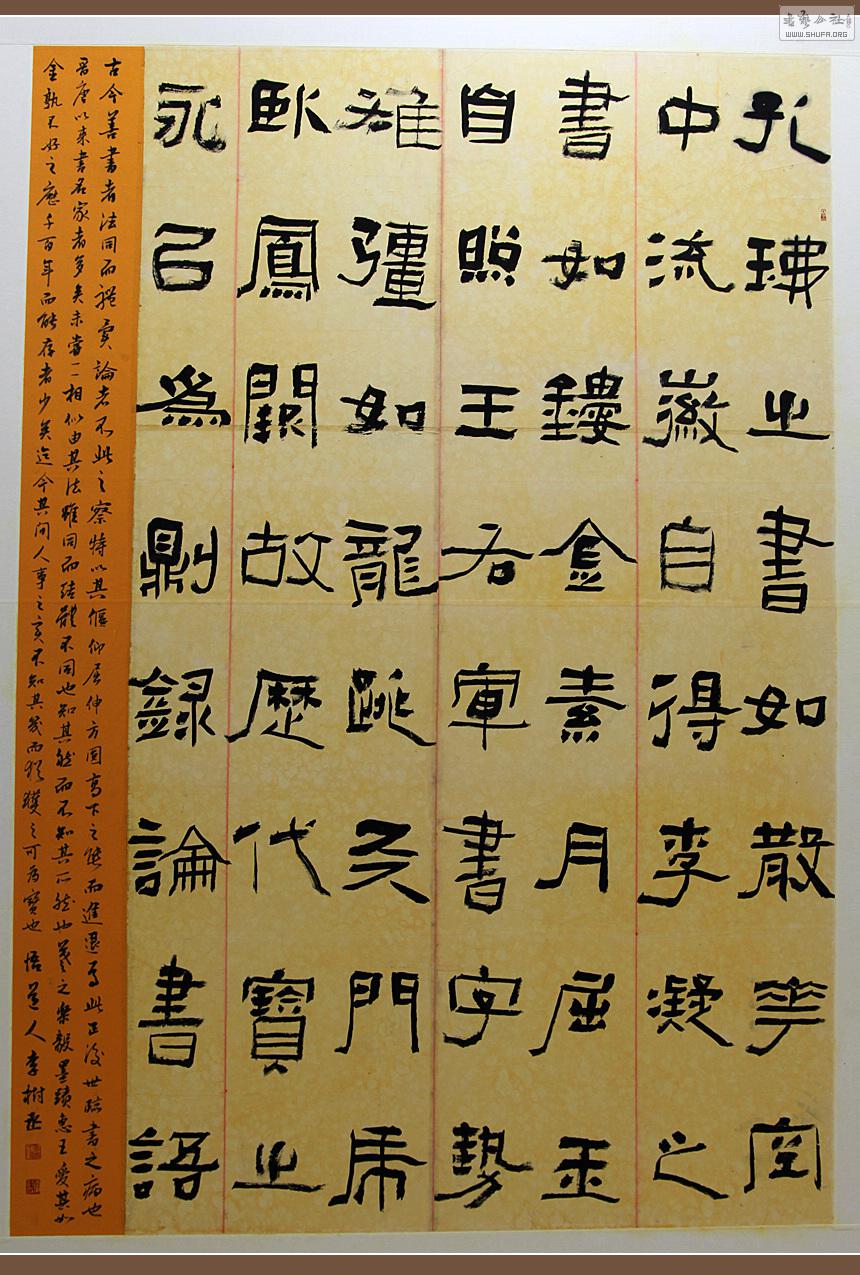 孔琳之書如散花空
中流徽自得李凝之
書如鏤金素月屈玉
自照王右軍書字勢
雄彊如龍跳天門虎
臥鳳闕故歷代寶之
永㠯為則錄論書語
古今善書者法同而體異論者不此之察特以其偃仰屈伸方圓高下之態而進退焉此正後世臨書之病也
晋唐以来書名家者多矣未嘗一一相似由其法雖同而結體不同也知其然而不知其所然也羲之樂毅墨蹟惠王愛其如
金孰不好之歷千百年而能存者少矣迄今其間人事之變不知其幾而猶獲之可為寶也 悟道人李樹丞
書藝公社
WWW.SHUFA.ORG